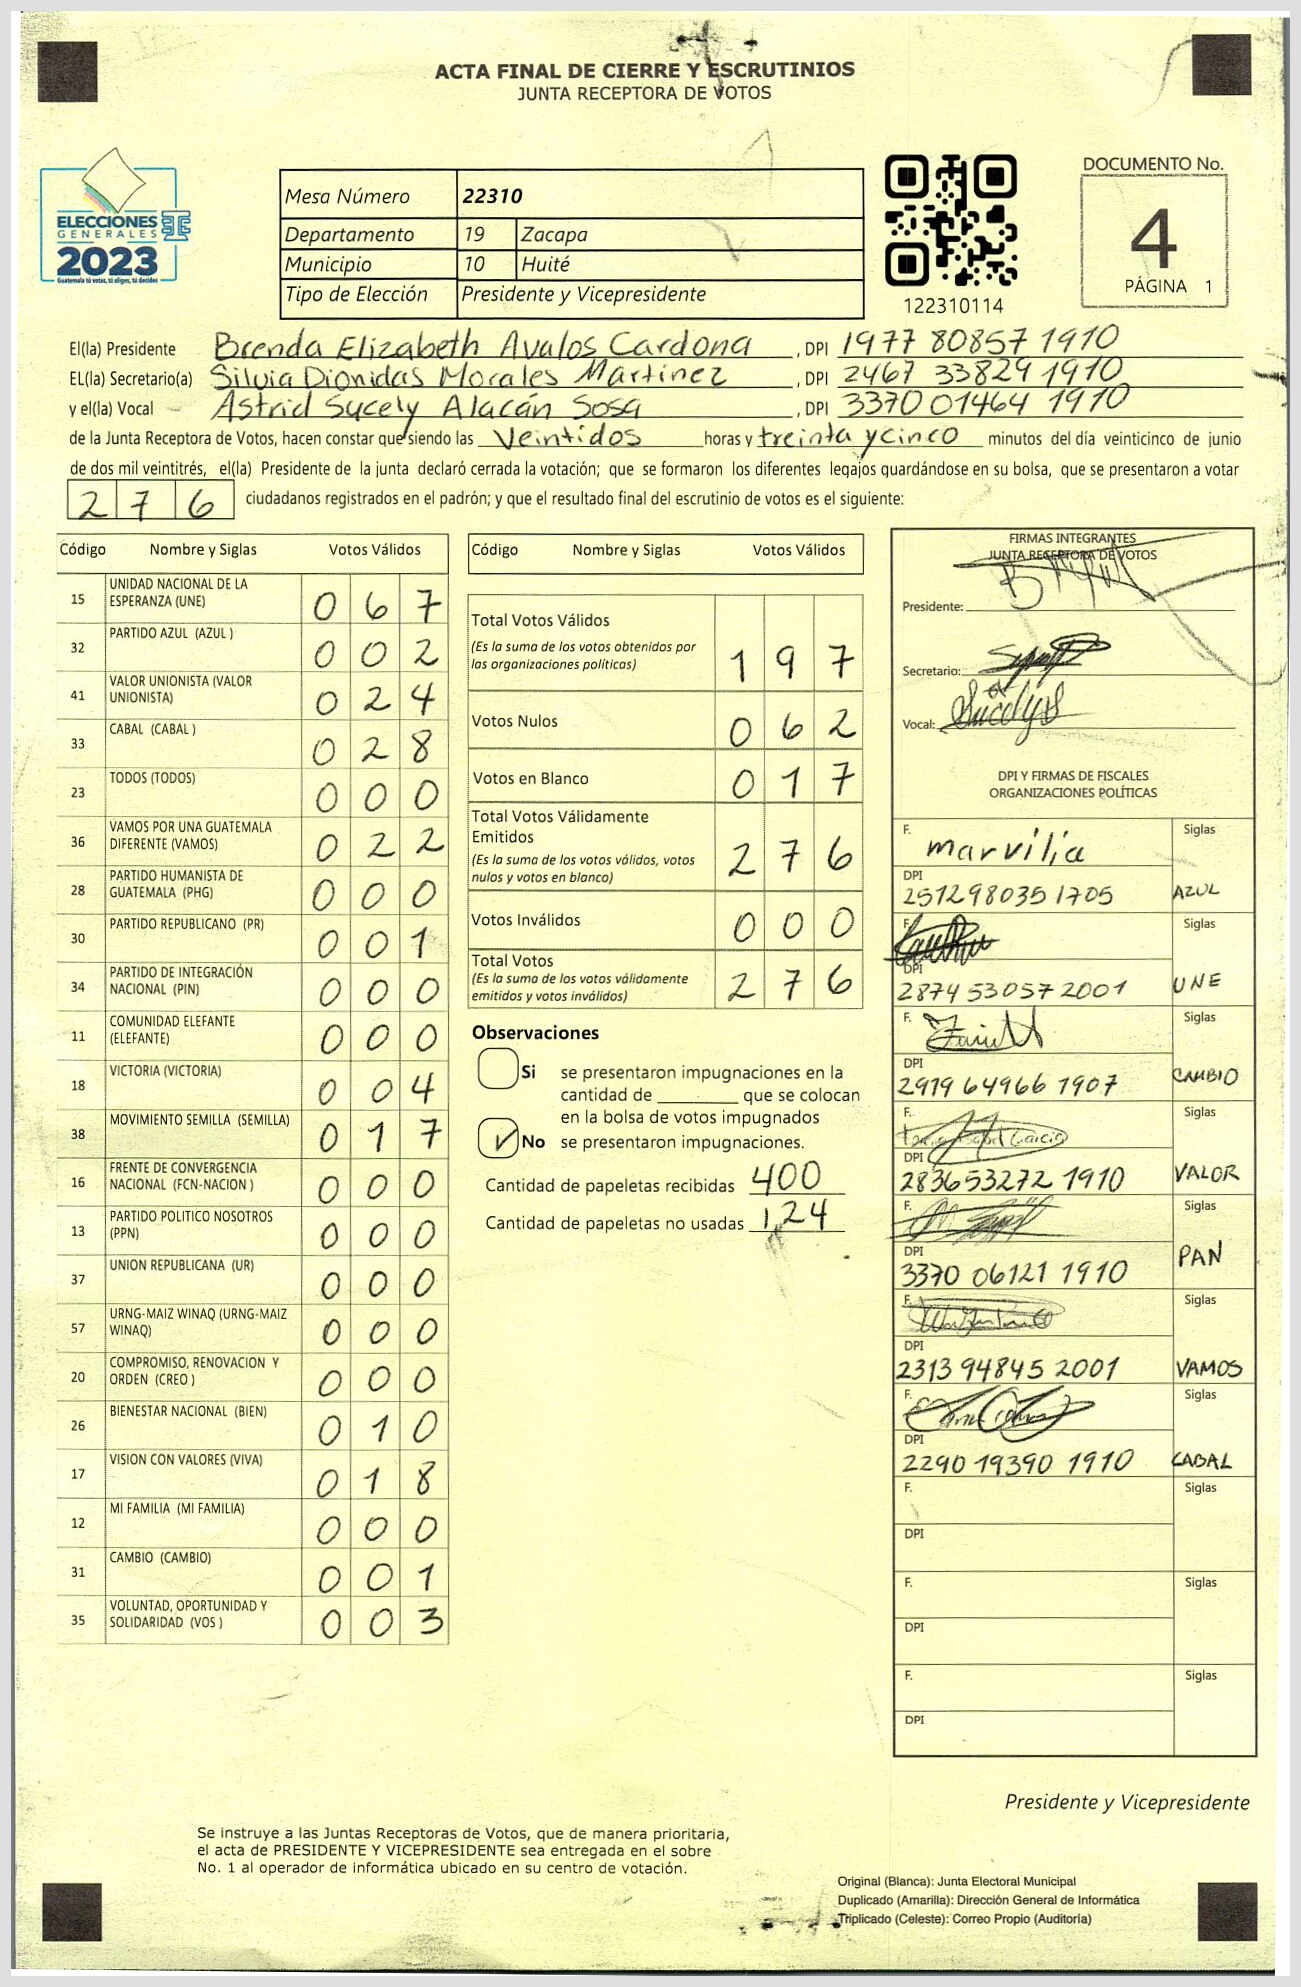 ACTA FINAL DE CIERRE Y ESCRUTINIOS
JUNTA RECEPTORA DE VOTOS
ELECCIONES
GENERALES
2023
Guatemala tú votas, tú eliges, tú decides
Mesa Número 22310
Departamento 19 Zacapa
Municipio 10 Huité
Tipo de Elección Presidente y Vicepresidente
122310114
DOCUMENTO No.
4
PÁGINA 1
El(la) Presidente Brenda Elizabeth Avalos Cardona , DPI 1977 80857 1910
EL(la) Secretario(a) Silvia Dionidas Morales Martinez , DPI 2467 33829 1910
y el(la) Vocal Astrid Sucely Alacán Sosa , DPI 3370 01464 1910
de la Junta Receptora de Votos, hacen constar que siendo las Veintidos horas y treinta y cinco minutos del día veinticinco de junio
de dos mil veintitrés, el(la) Presidente de la junta declaró cerrada la votación; que se formaron los diferentes legajos guardándose en su bolsa, que se presentaron a votar
276 ciudadanos registrados en el padrón; y que el resultado final del escrutinio de votos es el siguiente:
Código Nombre y Siglas Votos Válidos
15 UNIDAD NACIONAL DE LA ESPERANZA (UNE) 0 6 7
32 PARTIDO AZUL (AZUL ) 0 0 2
41 VALOR UNIONISTA (VALOR UNIONISTA) 0 2 4
33 CABAL (CABAL ) 0 2 8
23 TODOS (TODOS) 0 0 0
36 VAMOS POR UNA GUATEMALA DIFERENTE (VAMOS) 0 2 2
28 PARTIDO HUMANISTA DE GUATEMALA (PHG) 0 0 0
30 PARTIDO REPUBLICANO (PR) 0 0 1
34 PARTIDO DE INTEGRACIÓN NACIONAL (PIN) 0 0 0
11 COMUNIDAD ELEFANTE (ELEFANTE) 0 0 0
18 VICTORIA (VICTORIA) 0 0 4
38 MOVIMIENTO SEMILLA (SEMILLA) 0 1 7
16 FRENTE DE CONVERGENCIA NACIONAL (FCN-NACION ) 0 0 0
13 PARTIDO POLITICO NOSOTROS (PPN) 0 0 0
37 UNION REPUBLICANA (UR) 0 0 0
57 URNG-MAIZ WINAQ (URNG-MAIZ WINAQ) 0 0 0
20 COMPROMISO, RENOVACION Y ORDEN (CREO ) 0 0 0
26 BIENESTAR NACIONAL (BIEN) 0 1 0
17 VISION CON VALORES (VIVA) 0 1 8
12 MI FAMILIA (MI FAMILIA) 0 0 0
31 CAMBIO (CAMBIO) 0 0 1
35 VOLUNTAD, OPORTUNIDAD Y SOLIDARIDAD (VOS ) 0 0 3
Código Nombre y Siglas Votos Válidos
Total Votos Válidos
(Es la suma de los votos obtenidos por las organizaciones políticas) 1 9 7
Votos Nulos 0 6 2
Votos en Blanco 0 1 7
Total Votos Válidamente Emitidos
(Es la suma de los votos válidos, votos nulos y votos en blanco) 2 7 6
Votos Inválidos 0 0 0
Total Votos
(Es la suma de los votos válidamente emitidos y votos inválidos) 2 7 6
Observaciones
Si se presentaron impugnaciones en la
cantidad de ________ que se colocan
en la bolsa de votos impugnados
No se presentaron impugnaciones.
Cantidad de papeletas recibidas 400
Cantidad de papeletas no usadas 124
FIRMAS INTEGRANTES
JUNTA RECEPTORA DE VOTOS
Presidente:
Secretario:
Vocal:
DPI Y FIRMAS DE FISCALES
ORGANIZACIONES POLÍTICAS
F. marvilia Siglas
DPI 2512980351705 AZUL
F. Siglas
DPI 2874 53057 2001 UNE
F. Siglas
DPI 2919 64966 1907 CAMBIO
F. Siglas
DPI 283653272 1910 VALOR
F. Siglas
DPI 3370 06121 1910 PAN
F. Siglas
DPI 2313 94845 2001 VAMOS
F. Siglas
DPI 2290 19390 1910 CABAL
F. Siglas
DPI
F. Siglas
DPI
F. Siglas
DPI
Presidente y Vicepresidente
Se instruye a las Juntas Receptoras de Votos, que de manera prioritaria,
el acta de PRESIDENTE Y VICEPRESIDENTE sea entregada en el sobre
No. 1 al operador de informática ubicado en su centro de votación.
Original (Blanca): Junta Electoral Municipal
Duplicado (Amarilla): Dirección General de Informática
Triplicado (Celeste): Correo Propio (Auditoría)